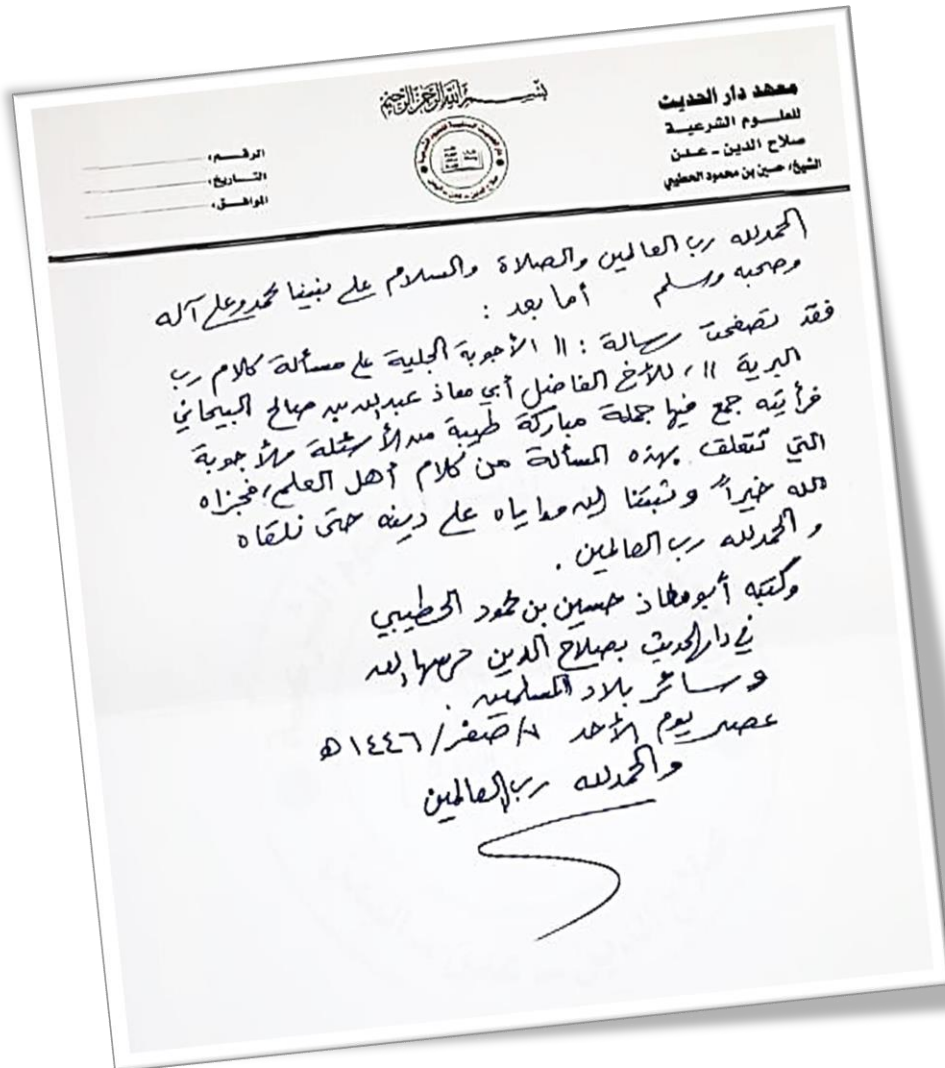 بسم الله الرحمن الرحيم
معهد دار الحديث
للعلوم الشرعية
صلاح الدين - عدن
الشيخ: حسين بن محمود الحطيبي
الرقم:
التاريخ:
الموافق:
الحمد لله رب العالمين والصلاة والسلام على نبينا محمد وعلى آله
وصحبه وسلم أما بعد :
فقد تصفحت رسالة : " الأجوبة الجلية على مسألة كلام رب
البرية "، للأخ الفاضل أبي معاذ عبدالله بن صالح البيحاني
فرأيته جمع فيها جملة مباركة طيبة من الأسئلة والأجوبة
التي تتعلق بهذه المسألة من كلام أهل العلم، فجزاه
الله خيراً وثبتنا الله وإياه على دينه حتى نلقاه
والحمد لله رب العالمين .
وكتبه أبو معاذ حسين بن محمود الحطيبي
في دار الحديث بصلاح الدين حرسها الله
وسائر بلاد المسلمين .
عصر يوم الأحد /صفر/١٤٤٦ هـ
والحمد لله رب العالمين